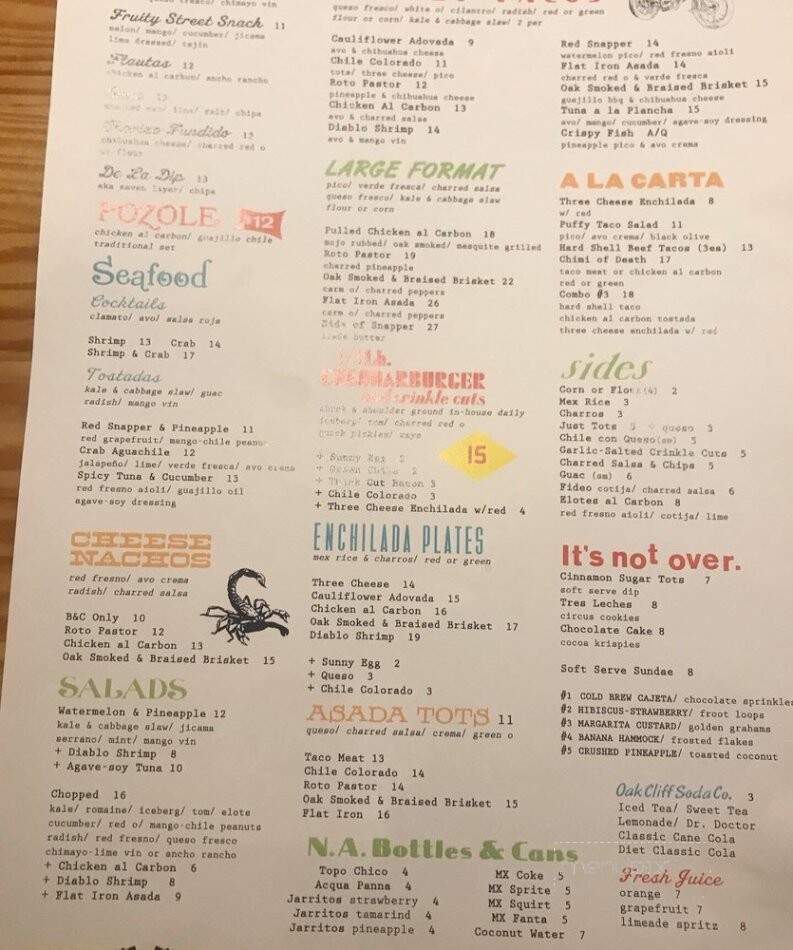 Fruity Street Snack 11
melon/ mango/ cucumber/ jicama
lime dressed/ tajin
Flautas 12
chicken al carbon/ ancho rancho
Fundido 13
chihuahua cheese/ charred red o
De La Dip 13
aka seven layer/ chips
POZOLE $12
chicken al carbon/ guajillo chile
traditional set
Seafood
Cocktails
clamato/ avo/ salsa roja
Shrimp 13 Crab 14
Shrimp & Crab 17
Tostadas
kale & cabbage slaw/ guac
radish/ mango vin
Red Snapper & Pineapple 11
red grapefruit/ mango-chile peanu
Crab Aguachile 12
jalapeño/ lime/ verde fresca/ avo crema
Spicy Tuna & Cucumber 13
red fresno aioli/ guajillo oil
agave-soy dressing
CHEESE
NACHOS
red fresno/ avo crema
radish/ charred salsa
B&C Only 10
Roto Pastor 12
Chicken al Carbon 13
Oak Smoked & Braised Brisket 15
SALADS
Watermelon & Pineapple 12
kale & cabbage slaw/ jicama
serrano/ mint/ mango vin
+ Diablo Shrimp 8
+ Agave-soy Tuna 10
Chopped 16
kale/ romaine/ iceberg/ tom/ elote
cucumber/ red o/ mango-chile peanuts
radish/ red fresno/ queso fresco
chimayo-lime vin or ancho rancho
+ Chicken al Carbon 6
+ Diablo Shrimp 8
+ Flat Iron Asada 9
TACOS
queso fresco/ white o/ cilantro/ radish/ red or green
flour or corn/ kale & cabbage slaw/ 2 per
Cauliflower Adovada 9
avo & chihuahua cheese
Chile Colorado 11
tots/ three cheese/ pico
Roto Pastor 12
pineapple & chihuahua cheese
Chicken Al Carbon 13
avo & charred salsa
Diablo Shrimp 14
avo & mango vin
LARGE FORMAT
pico/ verde fresca/ charred salsa
queso fresco/ kale & cabbage slaw
flour or corn
Pulled Chicken al Carbon 18
mojo rubbed/ oak smoked/ mesquite grilled
Roto Pastor 19
charred pineapple
Oak Smoked & Braised Brisket 22
carm o/ charred peppers
Flat Iron Asada 26
carm o/ charred peppers
Side of Snapper 27
Lb.
crinkle cuts
chuck & shoulder ground in-house daily
iceberg/ tom/ charred red o
quick pickles/ mayo
15
+ Sunny Egg 2
+ Green Chiles 2
+ Thick Cut Bacon 3
+ Chile Colorado 3
+ Three Cheese Enchilada w/red 4
ENCHILADA PLATES
mex rice & charros/ red or green
Three Cheese 14
Cauliflower Adovada 15
Chicken al Carbon 16
Oak Smoked & Braised Brisket 17
Diablo Shrimp 19
+ Sunny Egg 2
+ Queso 3
+ Chile Colorado 3
ASADA TOTS 11
queso/ charred salsa/ crema/ green o
Taco Meat 13
Chile Colorado 14
Roto Pastor 14
Oak Smoked & Braised Brisket 15
Flat Iron 16
N.A. Bottles & Cans
Topo Chico 4
Acqua Panna 4
Jarritos strawberry 4
Jarritos tamarind 4
Jarritos pineapple 4
MX Coke 5
MX Sprite 5
MX Squirt 5
MX Fanta 5
Coconut Water 7
Red Snapper 14
watermelon pico/ red fresno aioli
Flat Iron Asada 14
charred red o & verde fresca
Oak Smoked & Braised Brisket 15
guajillo bbq & chihuahua cheese
Tuna a la Plancha 15
avo/ mango/ cucumber/ agave-soy dressing
Crispy Fish A/Q
pineapple pico & avo crema
A LA CARTA
Three Cheese Enchilada 8
w/ red
Puffy Taco Salad 11
pico/ avo crema/ black olive
Hard Shell Beef Tacos (3ea) 13
Chimi of Death 17
taco meat or chicken al carbon
red or green
Combo #3 18
hard shell taco
chicken al carbon tostada
three cheese enchilada w/ red
sides
Corn or Flour (4) 2
Mex Rice 3
Charros 3
Just Tots 5 + queso 3
Chile con Queso(sm) 5
Garlic-Salted Crinkle Cuts 5
Charred Salsa & Chips 5
Guac (sm) 6
Fideo cotija/ charred salsa 6
Elotes al Carbon 8
red fresno aioli/ cotija/ lime
It's not over.
Cinnamon Sugar Tots 7
soft serve dip
Tres Leches 8
circus cookies
Chocolate Cake 8
cocoa krispies
Soft Serve Sundae 8
#1 COLD BREW CAJETA/ chocolate sprinkles
#2 HIBISCUS-STRAWBERRY/ froot loops
#3 MARGARITA CUSTARD/ golden grahams
#4 BANANA HAMMOCK/ frosted flakes
#5 CRUSHED PINEAPPLE/ toasted coconut
Oak Cliff Soda Co. 3
Iced Tea/ Sweet Tea
Lemonade/ Dr. Doctor
Classic Cane Cola
Diet Classic Cola
Fresh Juice
orange 7
grapefruit 7
limeade spritz 8